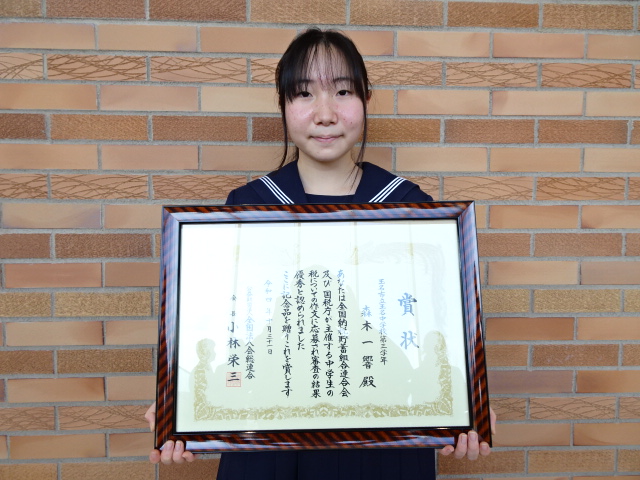 賞状
玉名市立玉名中学校第三学年
森木一響殿
あなたは全国納税貯蓄組合連合会
及び国税庁が主催する中学生の
税についての作文に応募され審査の結果
優秀と認められました
ここに記念品を贈りこれを賞します
令和四年十月三十一日
小林栄三